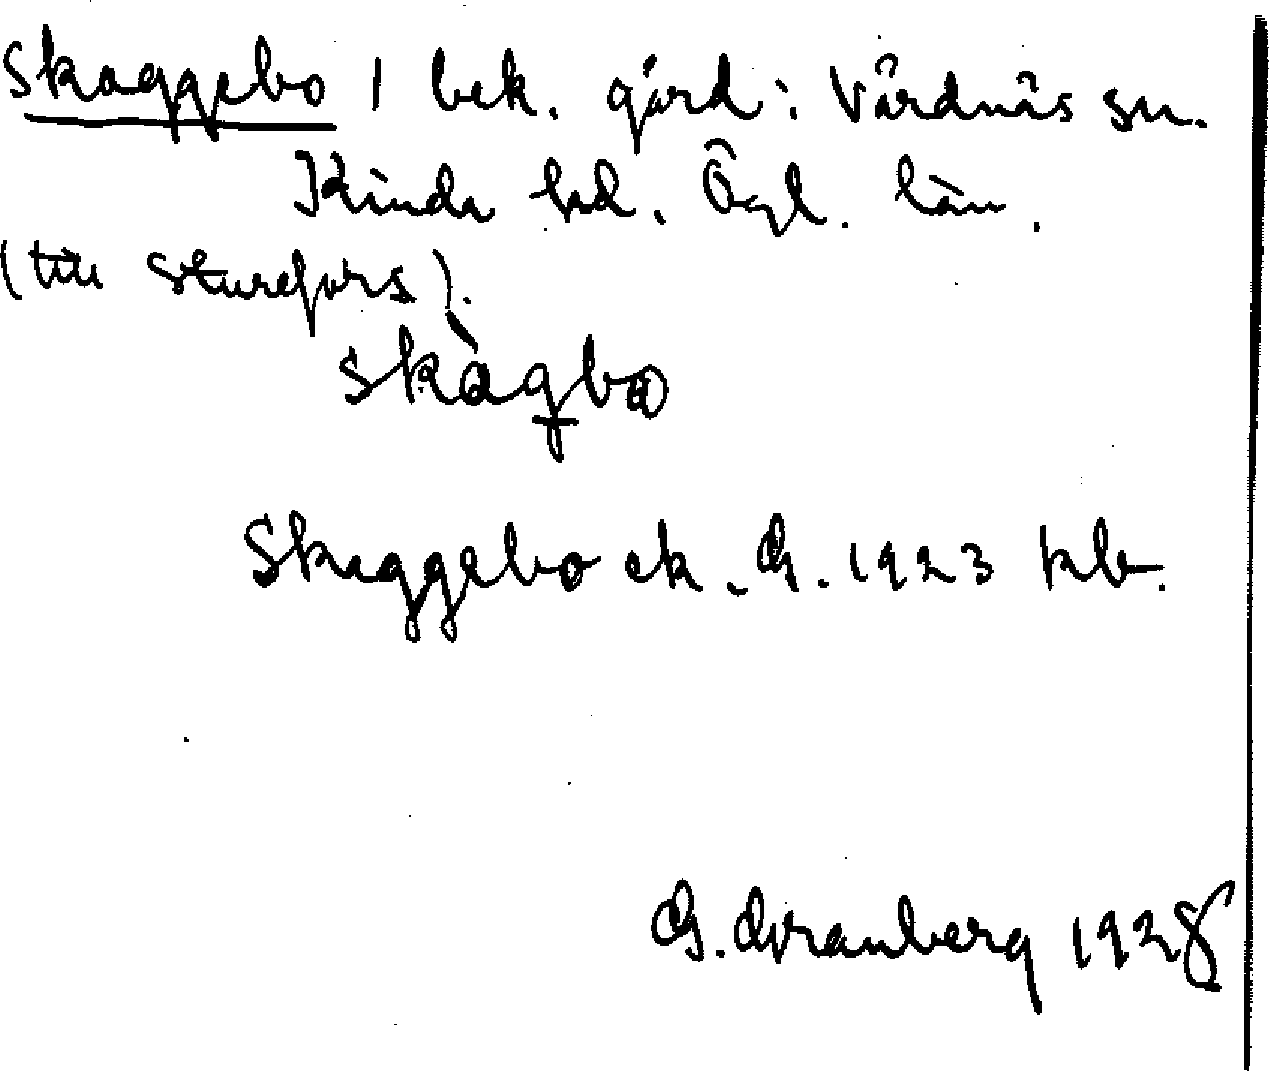 Skaggebo / bek. gård: Vårdnäs sn.
Kinda hd. Ögl. län.
(till Sturefors).
skàgbo
Skaggebo ek. G. 1923 klr.
G. Granberg 1928